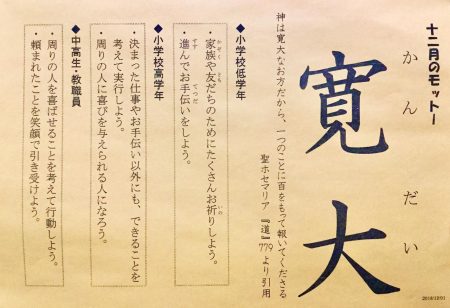 十二月のモットー
かん だい
寛大
神は寛大なお方だから、一つのことに百をもって報いてくださる
聖ホセマリア 『道』779より引用
◆小学校低学年
・家族や友だちのためにたくさんお祈りしよう。
かぞく とも いの
・進んでお手伝いをしよう。
すす てつだ
◆小学校高学年
・決まった仕事やお手伝い以外にも、できることを
考えて実行しよう。
・周りの人に喜びを与えられる人になろう。
◆中高生・教職員
・周りの人を喜ばせることを考えて行動しよう。
・頼まれたことを笑顔で引き受けよう。
2018/12/01